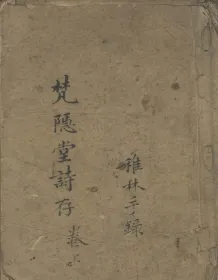 梵隱堂詩存 卷上
雅林手錄